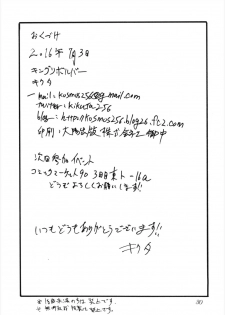 おくづけ
2016年7月3日
キングリボルバー
キクタ
mail: kosmos256@gmail.com
twitter: kikuta256
blog: http://kosmos256.blog26.fc2.com
印刷: 大陽出版株式会社 御中
次回参加イベント
コミックマーケット90 3日目東ト-16a
どうぞよろしくお願いします!!
いつもどうもありがとうございます!!
キクタ